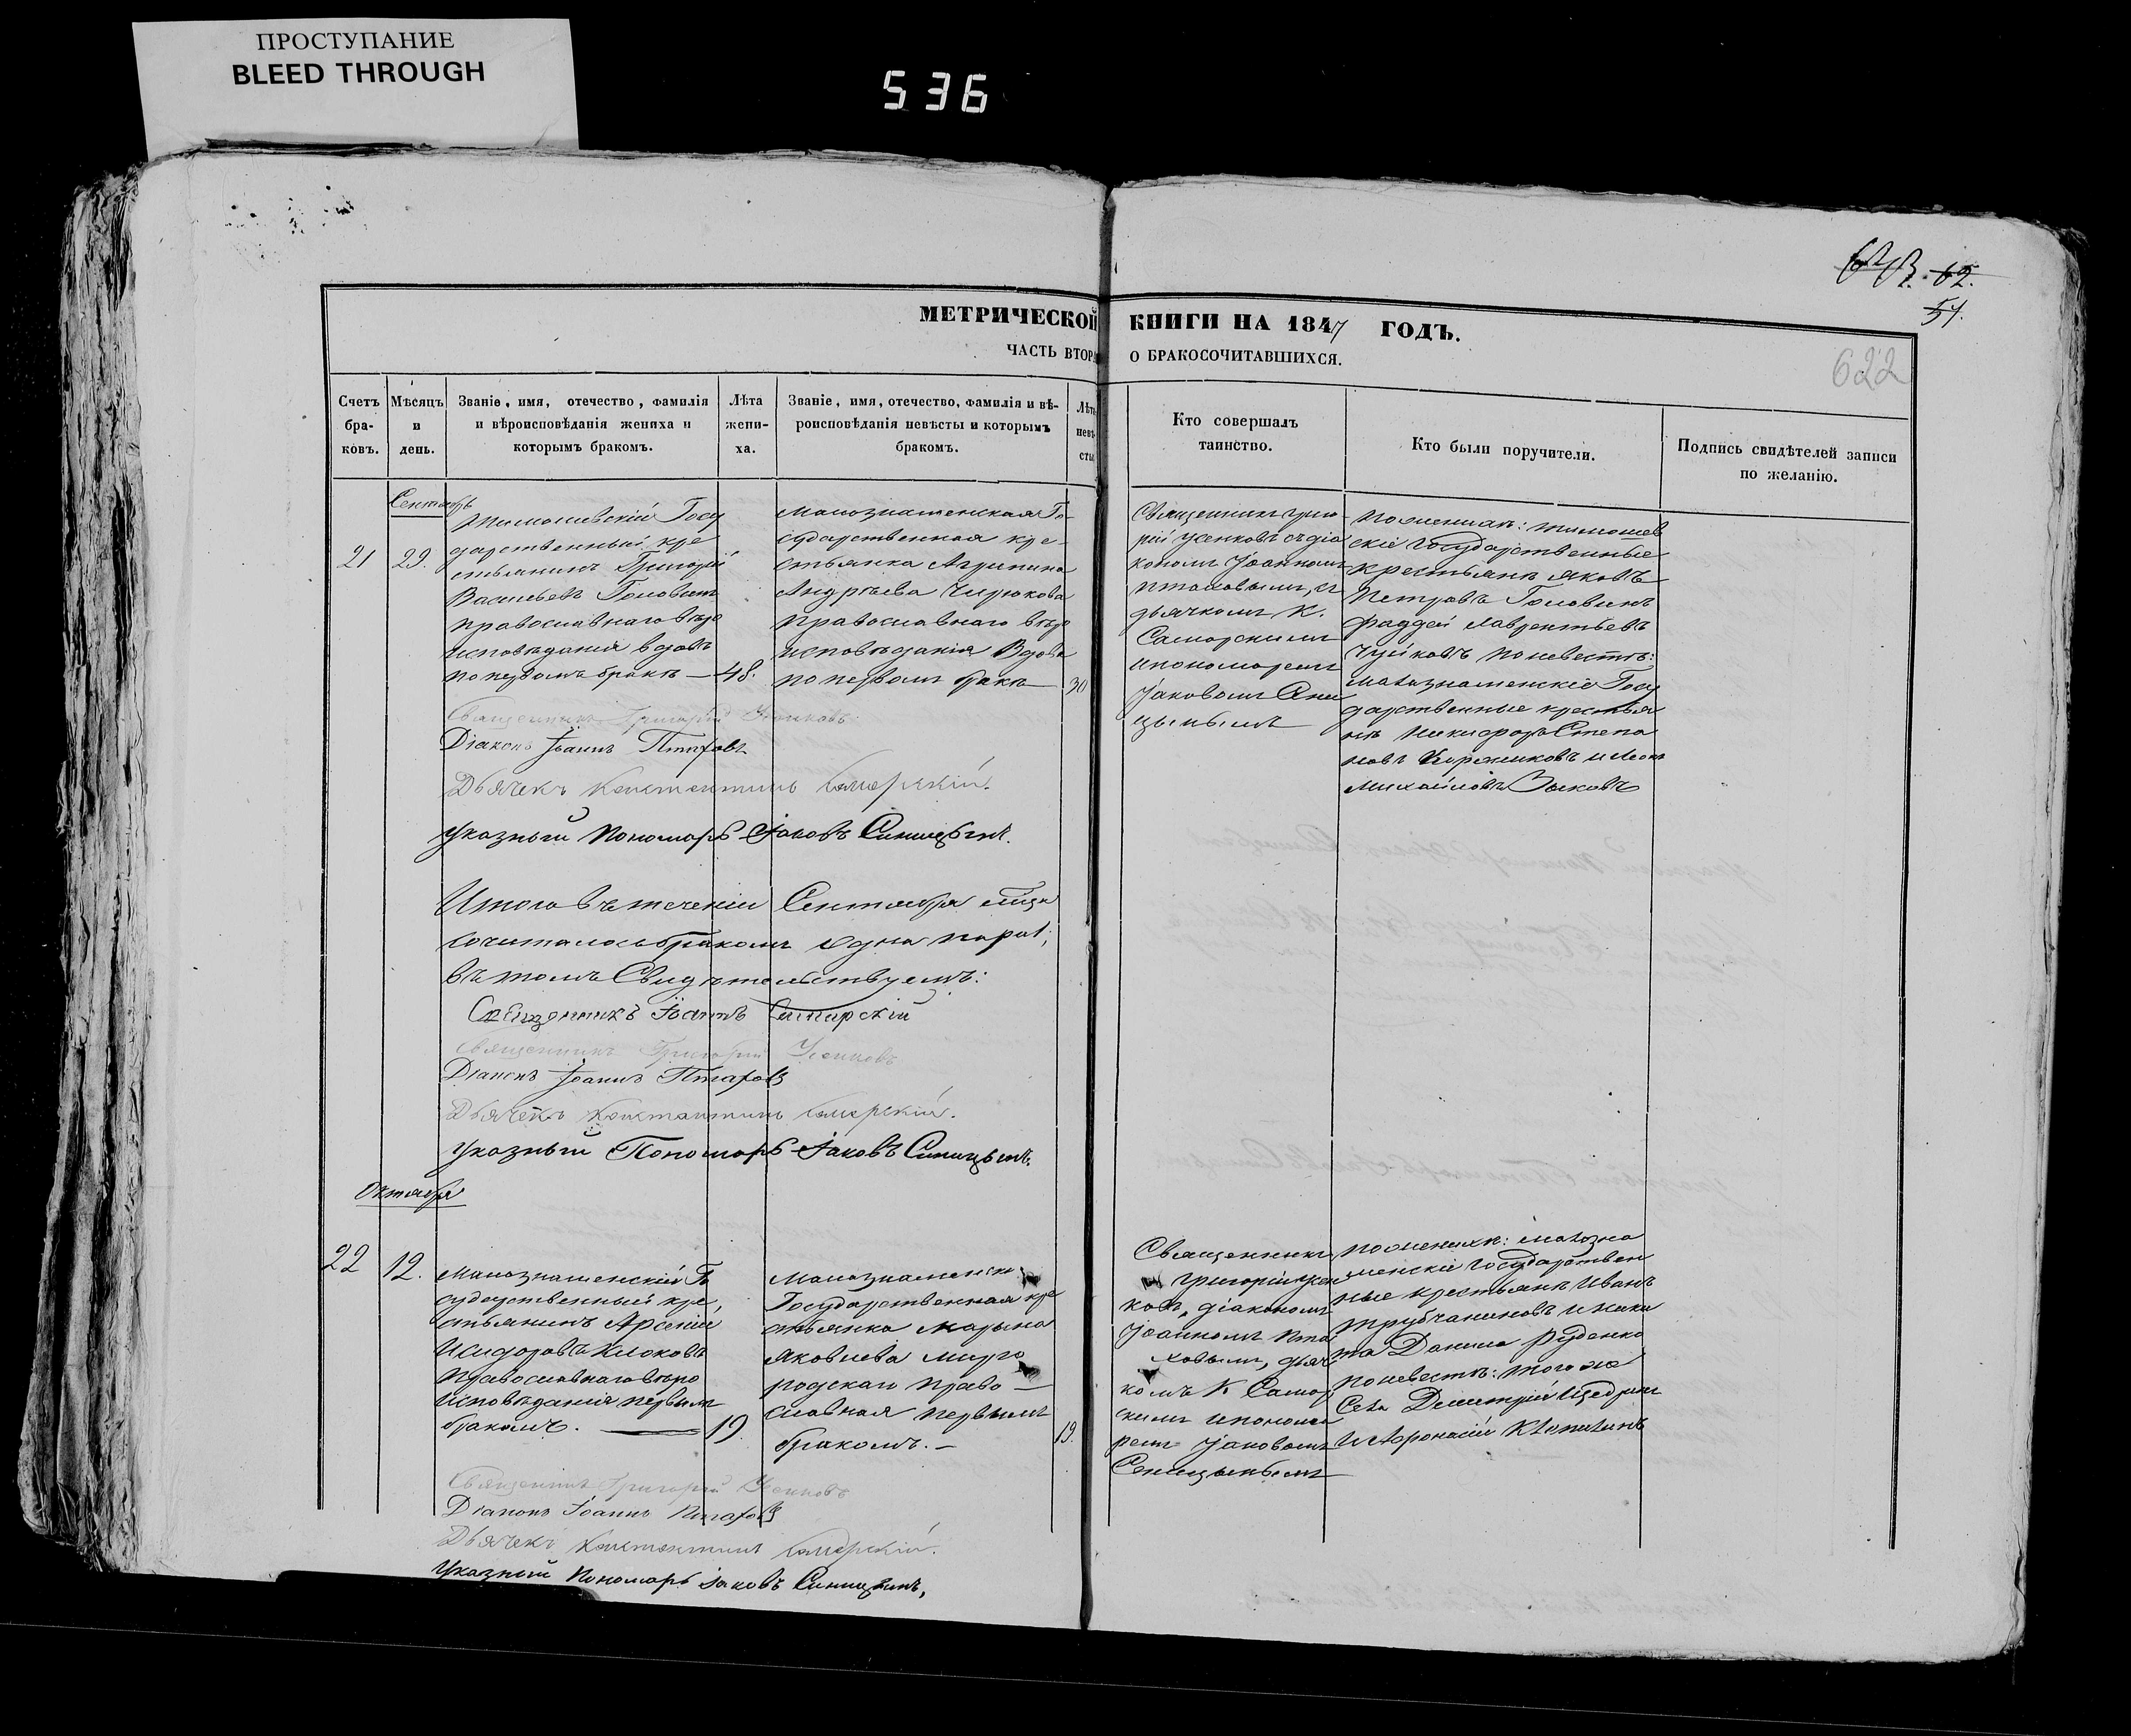 ПРОСТУПАНИЕ
BLEED THROUGH
536
62.
51.
622
МЕТРИЧЕСКОЙ КНИГИ НА 1847 ГОДЪ.
ЧАСТЬ ВТОРА О БРАКОСОЧИТАВШИХСЯ.
Счетъ бра-ковъ.
Мѣсяцъ и день.
Званіе, имя, отечество, фамилія
и вѣроисповѣданія жениха и
которымъ бракомъ.
Лѣта жени-ха.
Званіе, имя, отечество, фамилія и вѣ-
роисповѣданія невѣсты и которымъ
бракомъ.
Лѣта невѣ-сты
Кто совершалъ
таинство.
Кто были поручители.
Подпись свидѣтелей записи
по желанію.
Сентябрь
21
29.
Тимошевскій Госу
дарственный кре
стьянинъ Григорій
Васильевъ Головинъ
православнаго вѣро
исповѣданія вдовъ
по первомъ бракѣ — 48.
Малознаменская Го-
сударственная кре-
стьянка Агрипина
Андрѣева Чирюкова
православнаго вѣро
исповѣданія Вдова
по первомъ бракѣ — 30
Священникъ Григо
рій Усенковъ съ діа
кономъ Іоанномъ
Птаховымъ, съ
дьячкомъ К.
Саморскимъ
и пономаремъ
Іаковомъ Сини
цынымъ
По женихѣ: тимошев
скіе государственные
крестьяне Яковъ
Петровъ Головинъ
Фаддей Лаврентьевъ
Чуйковъ по невестѣ:
малознаменскіе Госу
дарственные крестья
не Никифоръ Степа
новъ и
Михайловъ Зыковъ
Священникъ Григорій Усенковъ
Діаконъ Іоаннъ Птаховъ
Дьячекъ Константинъ Саморскій.
Указный Пономарь Іаковъ Синицынъ.
Итого въ теченіи Сентября мѣсяца
сочиталось бракомъ одна пара;
въ томъ Свидѣтельствуемъ:
Священникъ Іоаннъ
Священникъ Григорій Усенковъ
Діаконъ Іоаннъ Птаховъ
Дьячекъ Константинъ Саморскій.
Указный Пономарь Іаковъ Синицынъ.
Октября
22
12.
Малознаменскій Го
сударственный кре,
стьянинъ Арсеній
Исидоровъ Клюковъ
Православнаго вѣро
исповѣданія первымъ
бракомъ. — 19
Малознаменска
Государственная кре
стьянка Марына
Яковлева Мирго
родская право —
славная первымъ
бракомъ. — 19.
Священникъ
Григорій Усен
ковъ, діакономъ
Іоанномъ Пта
ховымъ, дьяч
комъ К Самор
скимъ и понома
ремъ Іаковомъ
Синицынымъ
по женихѣ: малозна
менскіе государствен
ные крестьяне Иванъ
Трубчаниновъ и Ники
та Данило Руденко
по невестѣ: того же
Села Димитрій
и Афонасій Клопилинъ
Священникъ Григорій Усенковъ
Діаконъ Іоаннъ Птаховъ
Дьячекъ Константинъ Саморскій.
Указный Пономарь Іаковъ Синицынъ,